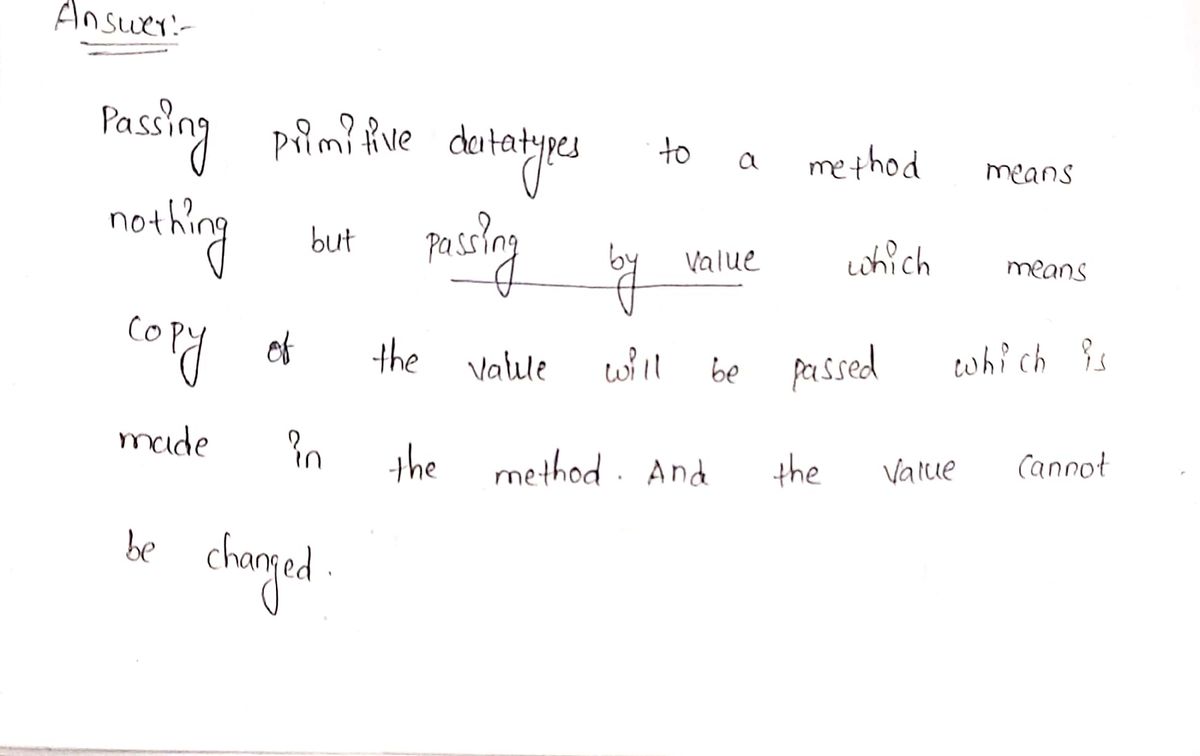 Answer:-
Passing primitive datatypes to a method means
nothing but passing by value which means
copy of the value will be passed which is
made in the method. And the value cannot
be changed.